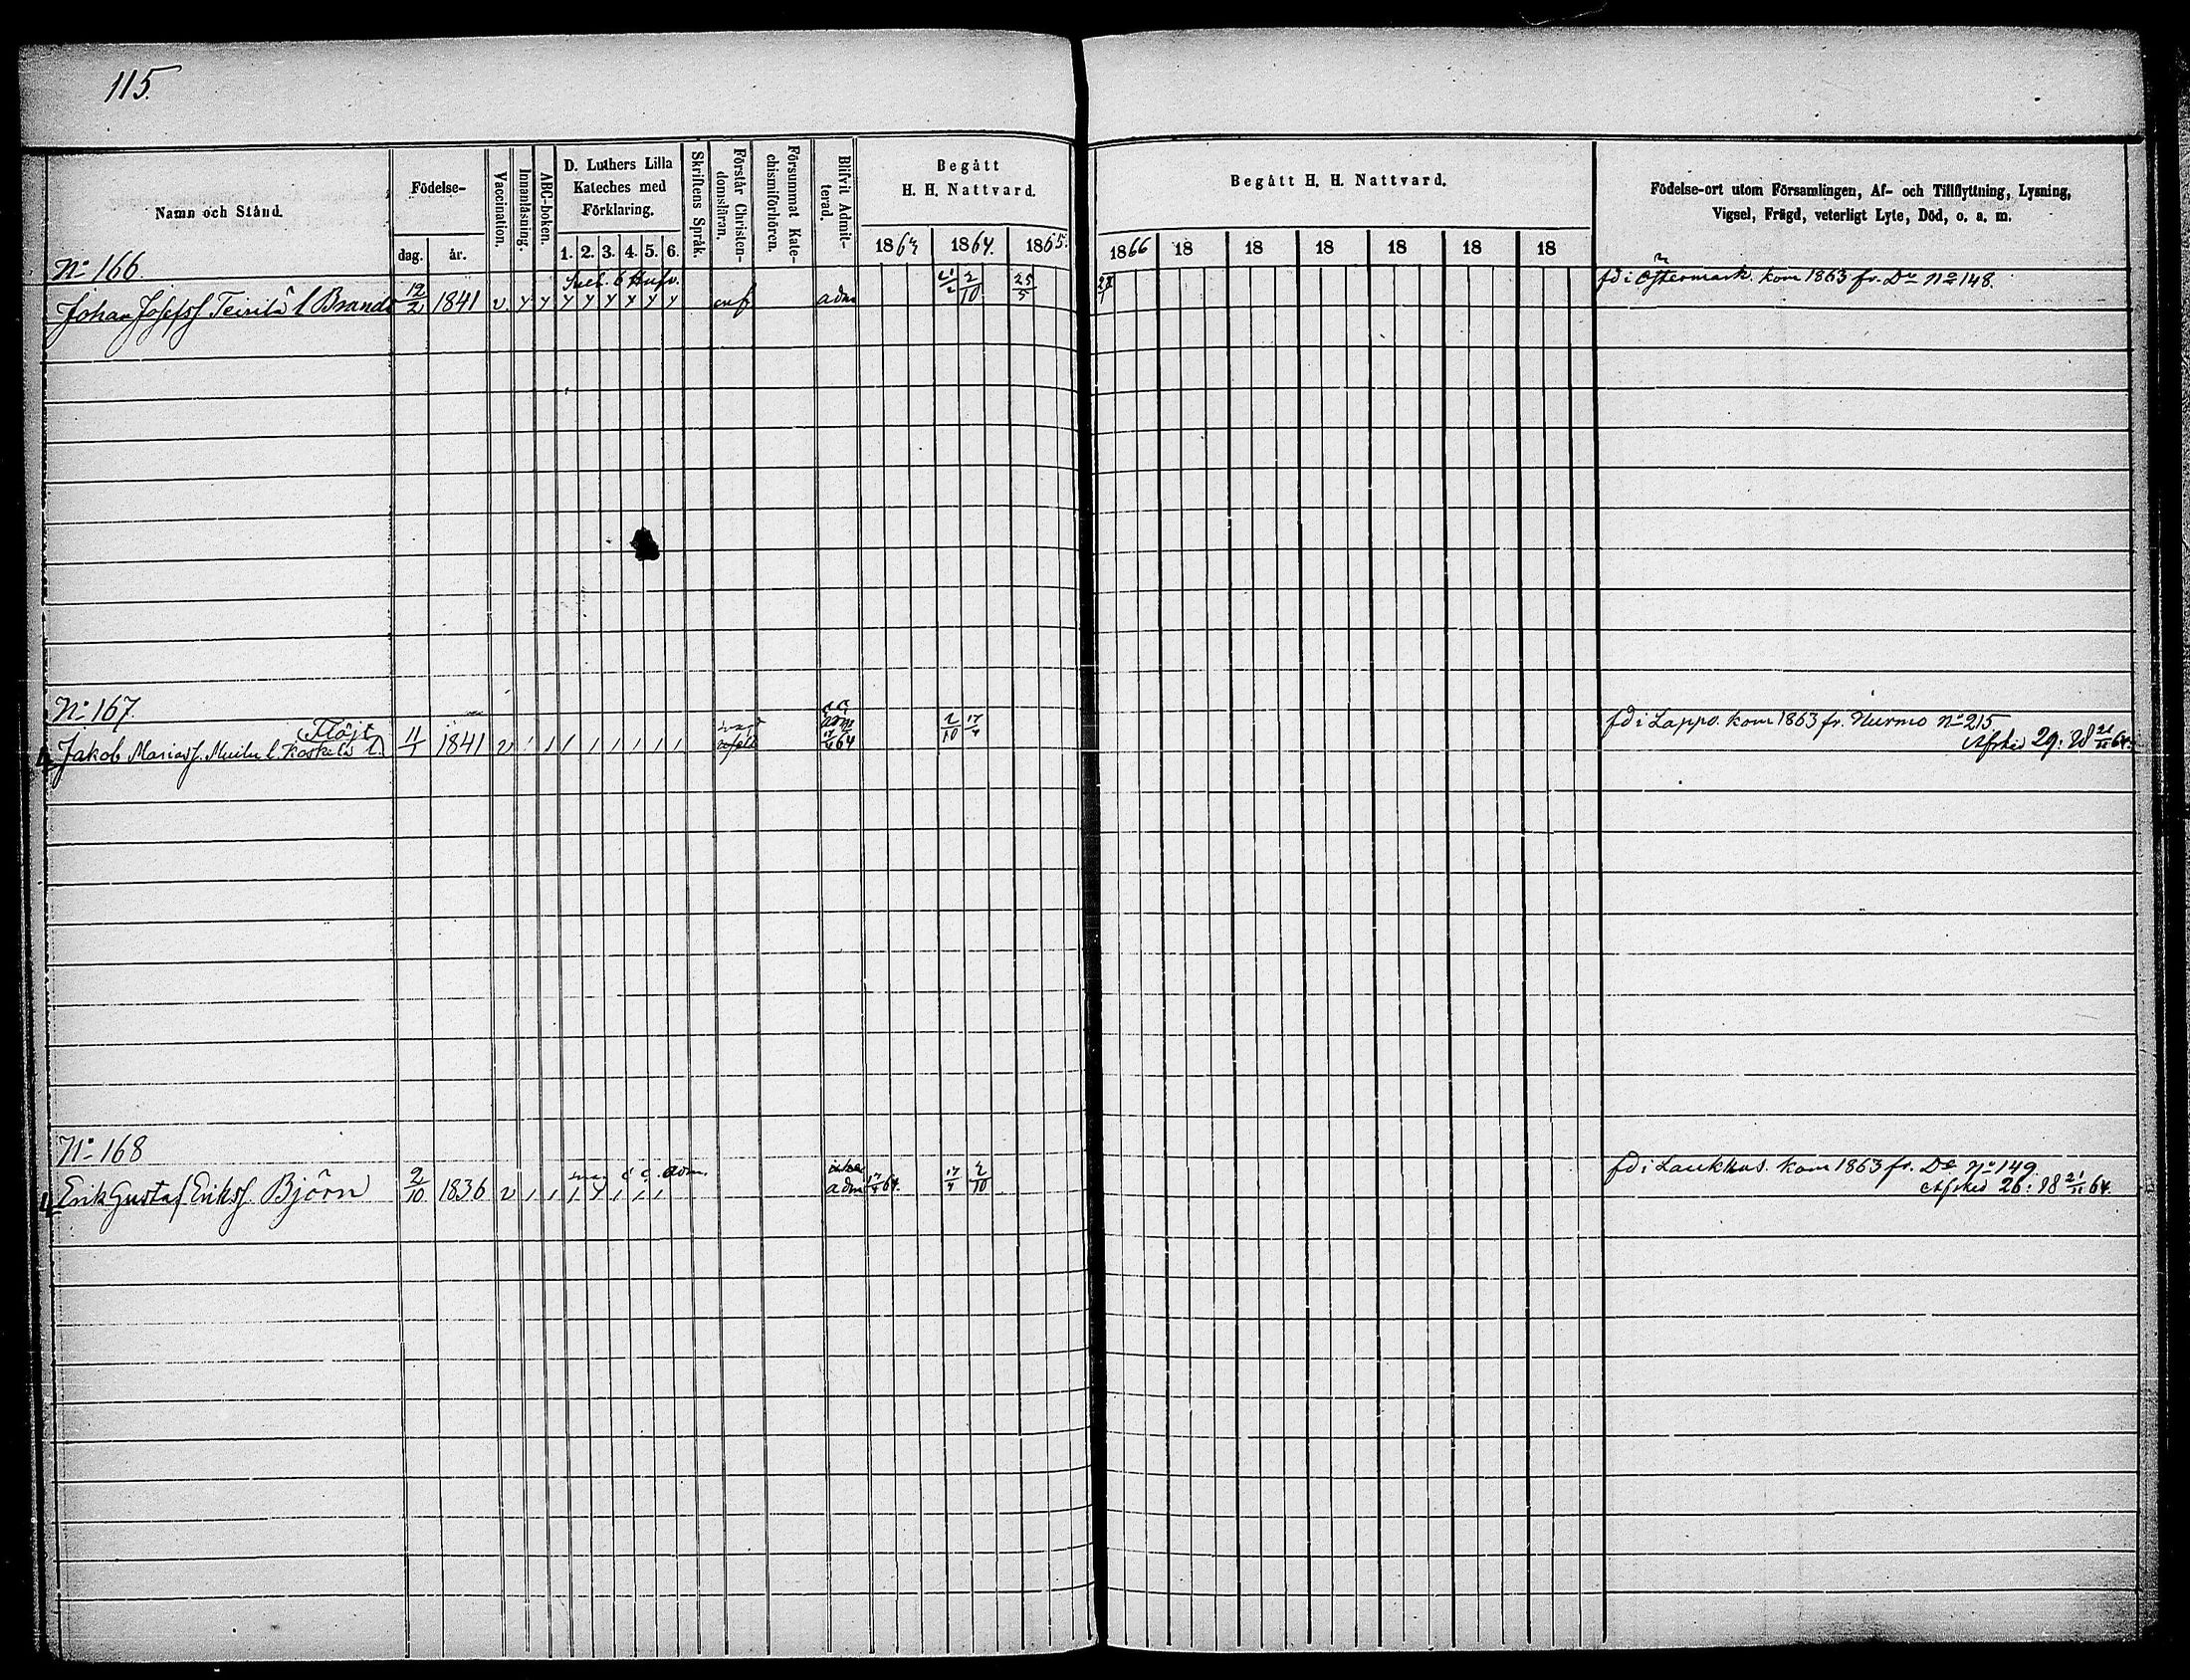 115.
Namn och Stånd.
Födelse-
dag. år.
Vaccination.
Innanläsning.
ABC-boken.
D. Luthers Lilla
Kateches med
Förklaring.
1. 2. 3. 4. 5. 6.
Skriftens Språk.
Förstår Christen-
domsläran.
Försummat Kate-
chismiförhören.
Blifvit Admit-
terad.
Begått
H. H. Nattvard.
1863 1864. 1865.
Begått H. H. Nattvard.
1866 18 18 18 18 18 18
Födelse-ort utom Församlingen, Af- och Tillflyttning, Lysning,
Vigsel, Frägd, veterligt Lyte, Död, o. a. m.
No 166.
6 Hufv.
fd i Östermark. kom 1863 fr. Do No 148.
Johan Josefss Teirilä l Brands 12/2 1841 v y y y y y y y y adm 2/10 25/5
No 167.
Flöjt
fd i Lappo. kom 1863 fr. Nurmo No 215
Jakob Mariass. Koskela 11/1 1841 v 1 1 1 1 1 1 1 1 17/4 64 2/10 17/4
Afsked 29: 18 21/11 64.
No 168
adm.
fd i Laukkas. kom 1863 fr. Do No 149
Erik Gustaf Erikss. Björn 2/10 1836 v 1 1 1 y 1 1 1 adm 17/4 64. 17/4 2/10
Afsked 26: 18 21/11 64.